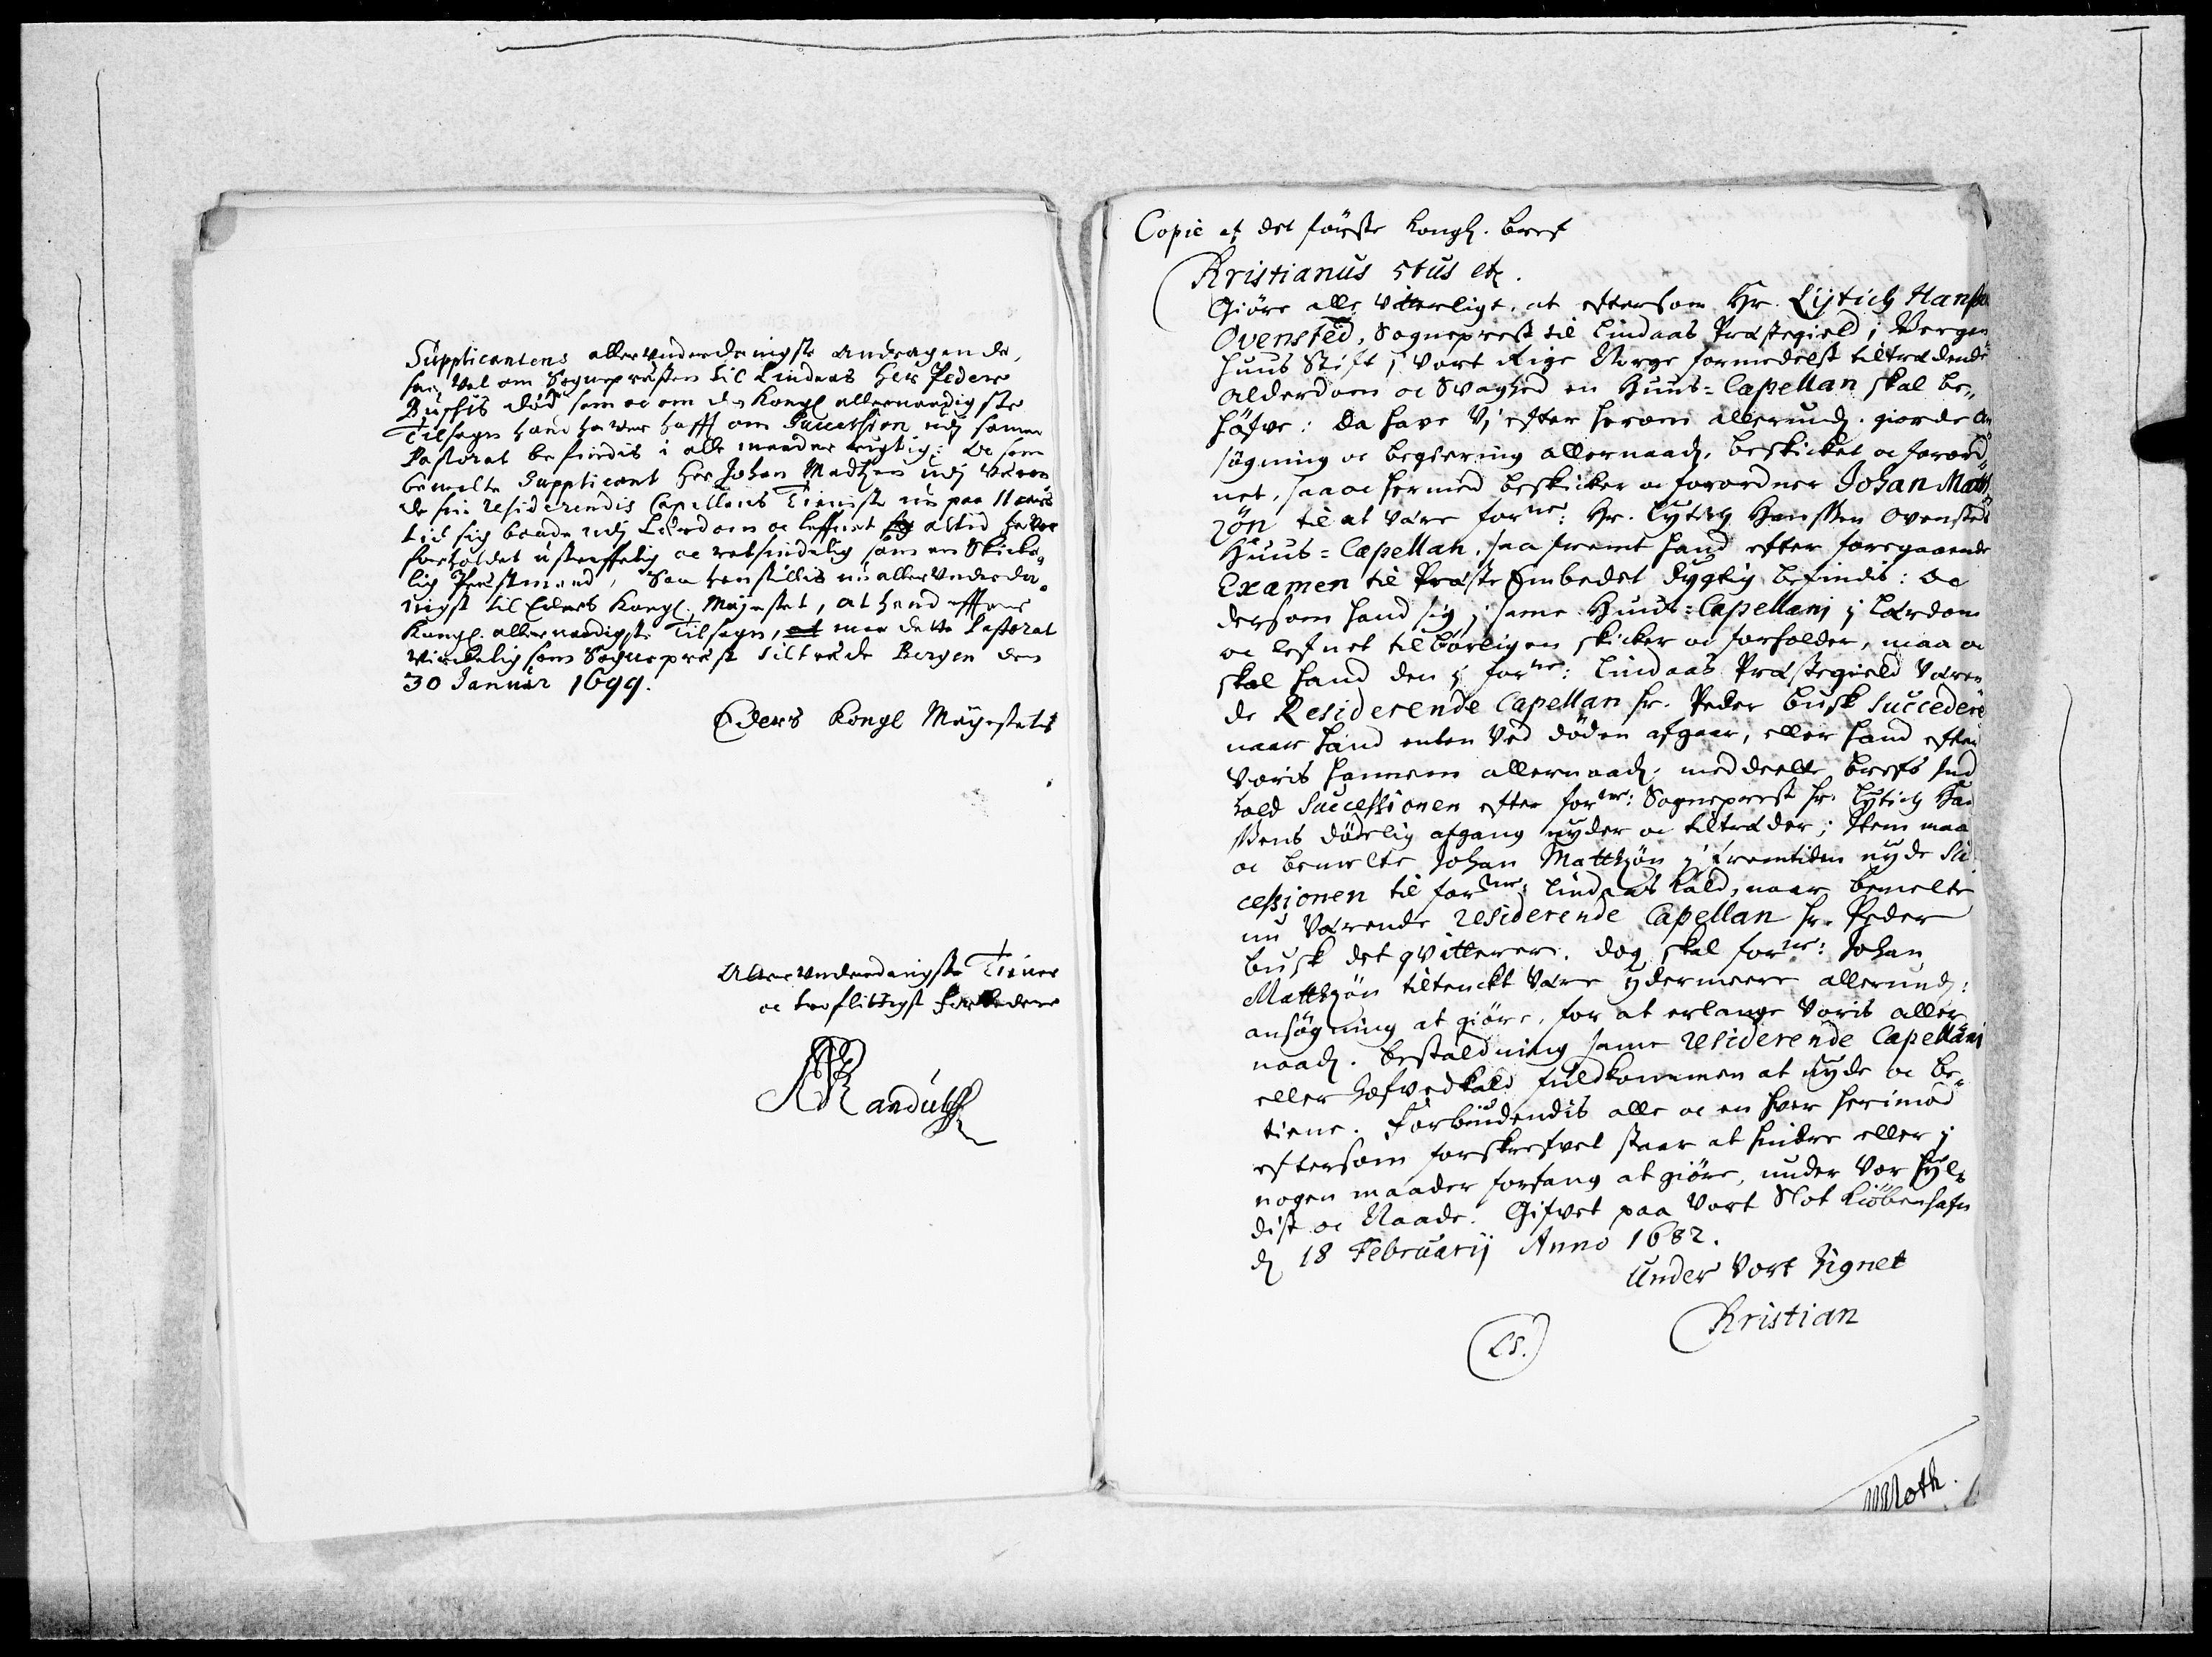 Supplicantens allerunderdanigste andragende,
saa vel om Sognepræsten til Lindaas Her Peder
Buschis død som oc om des Kongl allernaadigste
Tilsagn hand haver hafft om Succession udj samme
Pastorat befindis i alle maader rigtig: Oc som
bemelte Supplicant Her Johan Madtzen udj
de sin residerendis Capellans Tieniste nu paa 11 aars
tid sig baade udj Lærdom oc leffnet altid haver
forholdet ustraffelig oc retsindelig som en Skicke¬
lig Præstmand, Saa henstillis nu allerunderda¬
nigst til Eders Kongl. Mayestet, at hand
Kongl. allernaadigste Tilsagn, maa dette Pastorat
virckelig som Sognepræst tiltræde Bergen den
30 Januar 1699.
Eders Kongl Mayestets
Allerunderdanigste Tiener
oc troeflittigst forbedere
NRandulff
Copie af det förste Kongl. bref
Kristianus 5tus etc.
Giöre alle vitterligt, at eftersom Hr. Lÿtich Hansen
Ovensted, Sognepræst til Lindaas Præstegield i Bergen
huus Stift i vort Rige Norge formedelst tiltrædende
Alderdom oc Svaghed en Huus-Capellan skal be„
höfve: Da have Vi efter herom allerund. giorde An
søgning oc begiering allernaad. beskicket oc forord
net, saa oc hermed beskicker oc forordner Johan Matt
zøn til at være forne: Hr. Lytich Hanssen Ovensteds
Huus-Capellan, saa fremt hand efter foregaaende
Examen til Præste Embedet dygtig befindis: Oc
dersom hand sig j samme Huus-Capellanj j Lærdom
oc lefnet tilbørligen skicker oc forholder, maa oc
skal hand den j forne: Lindaas Præstegield væren
de Residerende Capellan Hr. Peder Busk Succedere
naar hand enten ved døden afgaar, eller hand efter
Voris hannem allernaad. meddeelte brefs Ind
hold Successionen efter forne: Sognepræst Hr. Lytich Han
ssens dødelig afgang nyder oc tiltræder; Item maa
oc bemelte Johan Matthzøn j fremtiden nyde Suc
cessionen til forne: Lindaas kald, naar bemelte
nu værende residerende Capellan Hr. Peder
Busk det qvitterer. dog skal forne: Johan
Matthzøn tiltenckt være ydermeere allerund:
ansøgning at giöre, for at erlange Voris aller
naad. bestaldning samme residerende Capellani
eller Hofvedkald fuldkommen at nyde oc be„
tiene. Forbiudendis alle oc en hver herimod
eftersom forskrefvet staar at hindre eller j
nogen maader forfang at giöre, under Vor Hyl¬
dist oc Naade. Gifvet paa Vort Slot Kiöbenhafn
d 18 Februarij Anno 1682.
Under Vort Zignet
Kristian
LS.
MMoth.